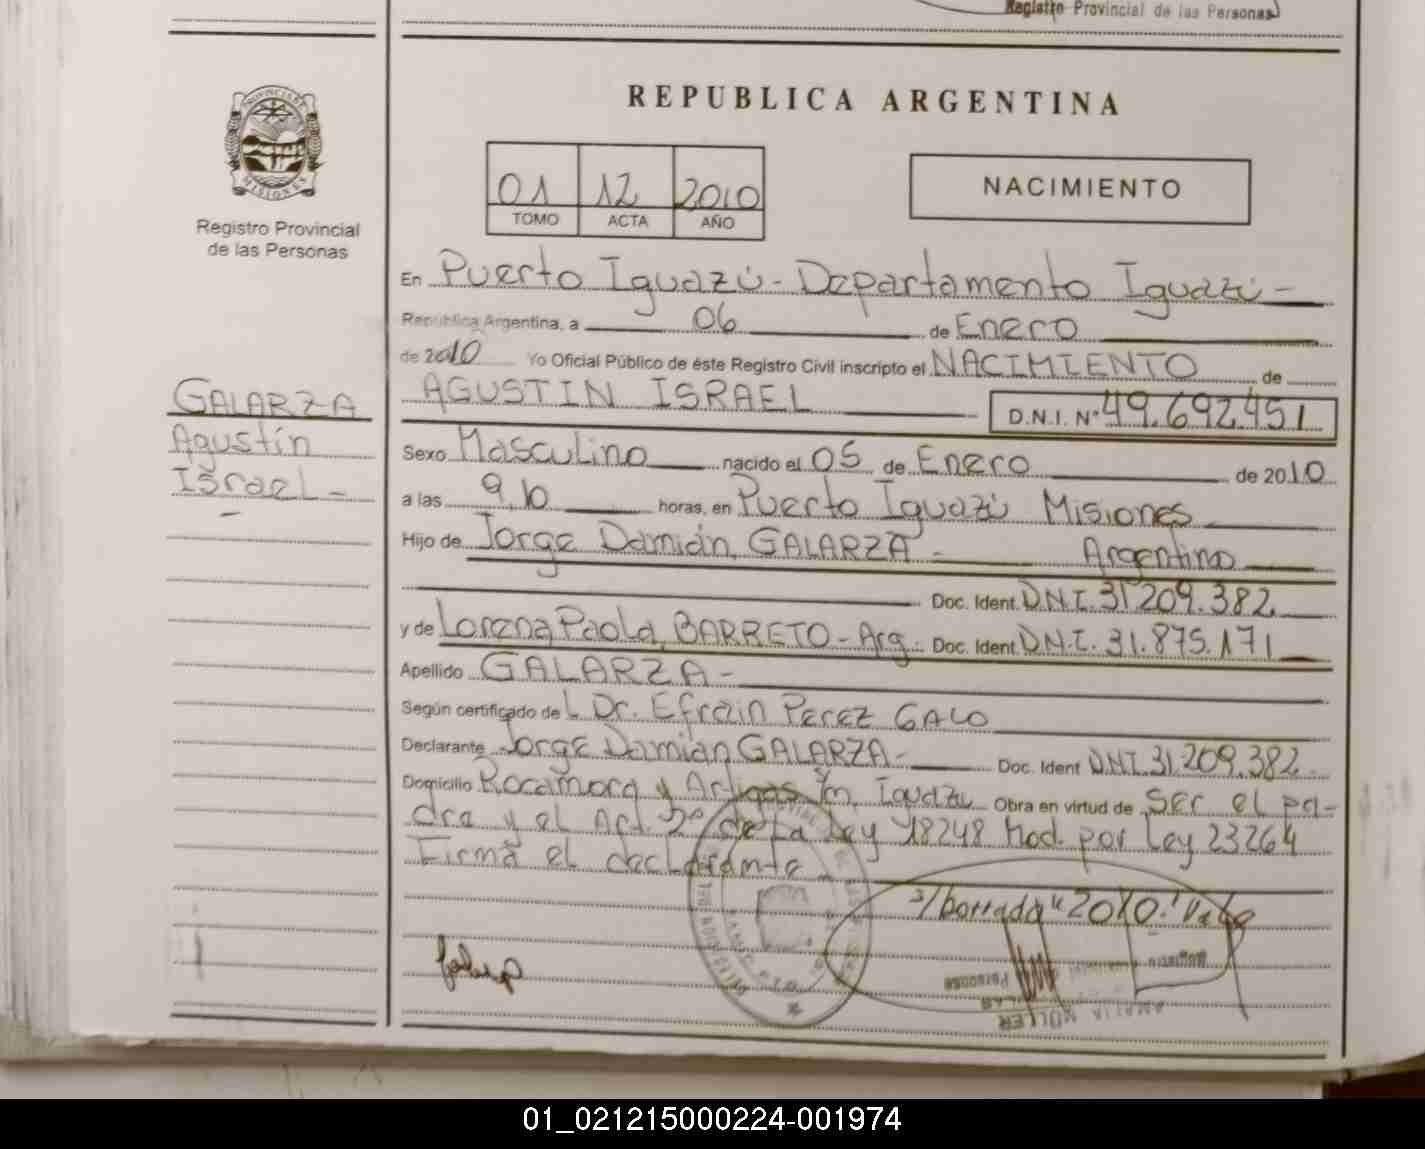 Registro Provincial de las Personas
REPUBLICA ARGENTINA
PROVINCIA DE
MISIONES
Registro Provincial
de las Personas
01 12 2010
TOMO ACTA AÑO
NACIMIENTO
En Puerto Iguazú - Departamento Iguazú -
República Argentina, a 06 de Enero
de 2010 Yo Oficial Público de éste Registro Civil inscripto el NACIMIENTO de
AGUSTIN ISRAEL D.N.I. N° 49.692.451
GALARZA
Agustín
Israel -
Sexo Masculino nacido el 05 de Enero de 2010
a las 9,10 horas, en Puerto Iguazú Misiones
Hijo de Jorge Damián GALARZA - Argentino
Doc. Ident. D.N.I. 31.209.382
y de Lorena Paola BARRETO - Arg. Doc. Ident. D.N.I. 31.875.171
Apellido GALARZA -
Según certificado del Dr. Efrain Perez GALO
Declarante Jorge Damián GALARZA - Doc. Ident DNI. 31.209.382.
Domicilio Rocamora y Artigas Iguazú Obra en virtud de Ser el pa-
dre y el Art. 2° de La Ley 18248 Mod. por Ley 23264
Firma el declarante
s/borrado "2010" Vale
AMALIA MÜLLER
01_021215000224-001974